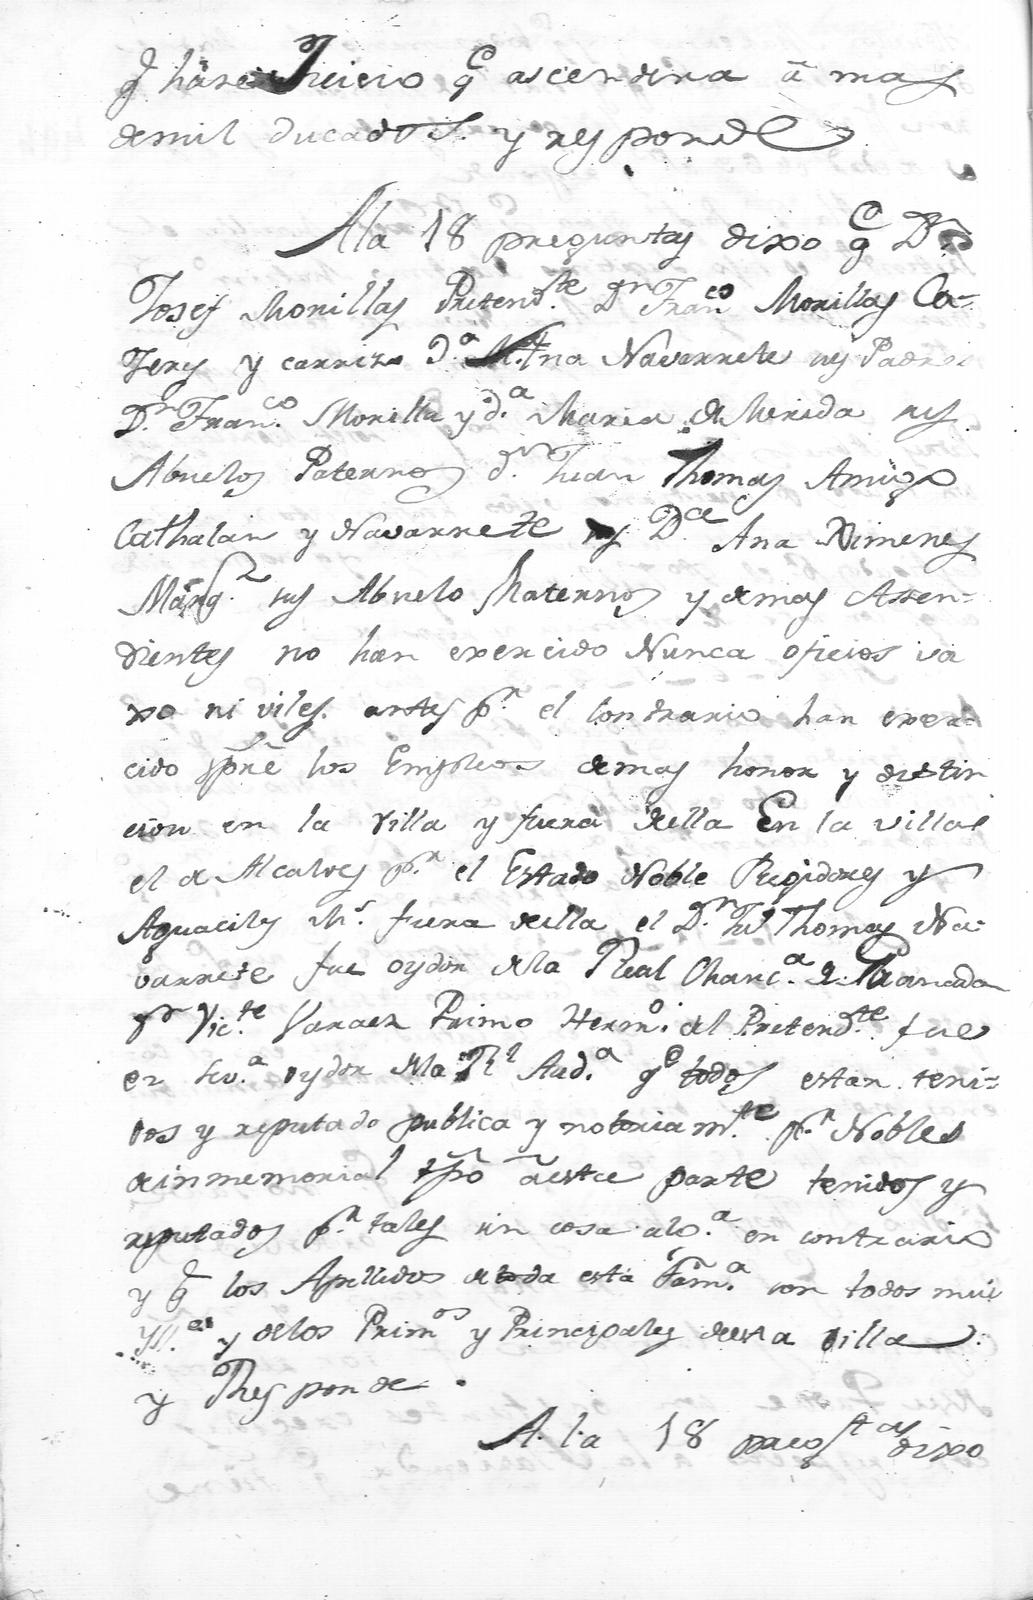 q hare Juicio q ascendera a mas
demil ducados. y responde
Ala 18 preguntas dixo q Dn
Josef Morillas Pretend.te Dn Fran.co Morillas Ca-
y carrizo D.a Navarrete sus Padres
D.n Fran.co Morilla y d.a Maria de Merida sus
Abuelos Paternos d.n Juan Thomas Amigo
Cathalan y Navarrete y D.a Ana Ximenes
Marq.z sus Abuelo Maternos y demas Assen-
dientes no han exercido Nunca oficios va
xo ni viles. antes p.r el contrario han exer-
cido spre los Empleos demas honor y distin
cion en la Villa y fuera della En la villa
el de Alcaldes p.r el Estado Noble Regidores y
Aguaciles M.r fuera della el D.n Ju Thomas Na-
varrete fue oydor dela Real Chanc.a d. Granada
Vic.te Primo Herm.o del Pretend.te fue
en Sev.a oydor dela Rl Aud.a q todos estan teni-
dos y reputado publica y notoriam.te p.r Nobles
deinmemorial tpo aesta parte tenidos y
reputados p.r tales sin cosa alg.a en contrario
y q los Apellidos detoda esta fam.a son todos mui
Yll.es y delos Prim.os y Principales desta villa
y Responde.
A la 18 preg.tas dixo